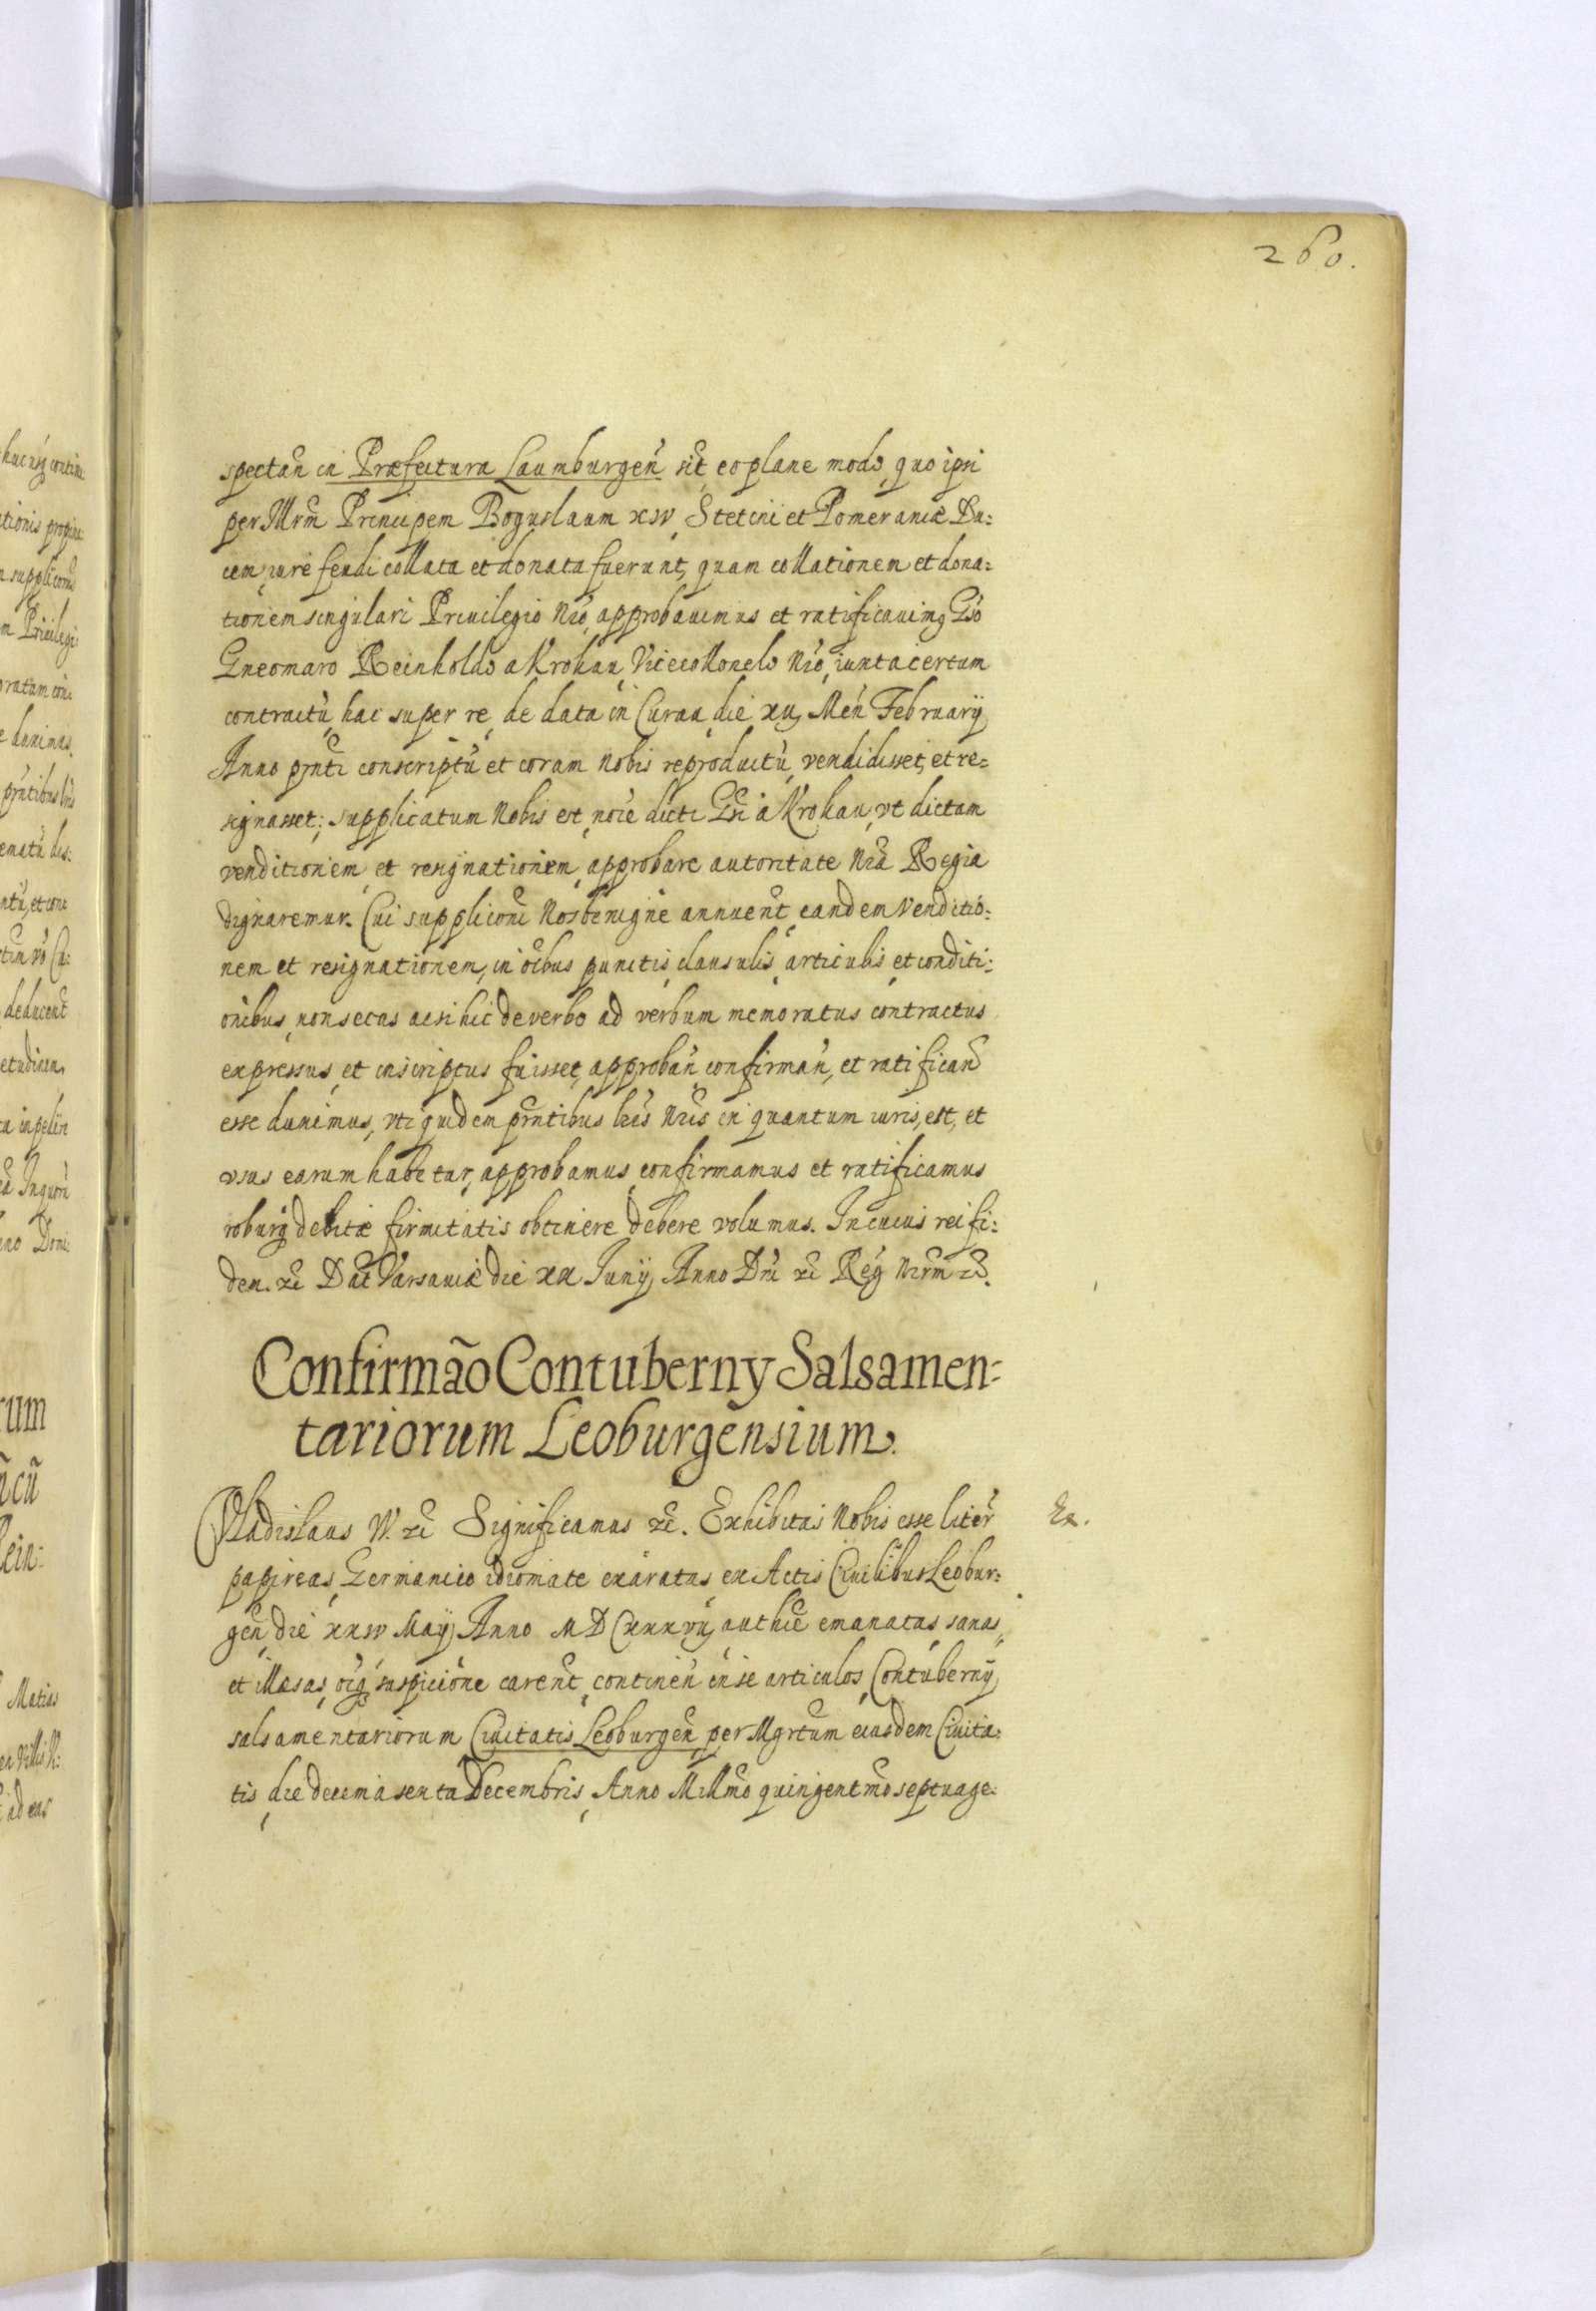 260.
spectan̄ in Præfectura Laumburgen̄ sit̄ eo plane modo, quo ipsi
per Illrm̄ Principem Boguslaum XIV, Stetini et Pomeraniæ Du:
cem, iure feudi collata et donata fuerunt, quam collationem et dona:
tionem singulari Priuilegio Nr̄o approbauimus et ratificauimq Gn̄so
Gneomaro Reinholdo a Krokau Vicecolonelo Nr̄o, iuxta certum
contractū hac super re, de data in Curaa die XII Men̄ February
Anno pn̄ti conscriptū et coram Nobis reproductū, vendidisset, et re=
signasset; supplicatum Nobis est, noīe dicti Gn̄si à Krokau, vt dictam
venditionem, et resignationem, approbare autoritate Nr̄a Regia
dignaremur. Cui suppliconi Nos benigne annuent̄, eandem Venditio:
nem et resignationem, in oībus punctis, clausulis, articulis, et conditi:
onibus, non secus ac si hic de verbo ad verbum memoratus contractus
expressus, et inscriptus fuisset, approban̄, confirman̄, et ratifican̄
esse duximus, vti quidem pn̄tibus lr̄is Nr̄is in quantum iuris, est, et
vsus earum habetur, approbamus, confirmamus et ratificamus
roburq debitæ firmitatis obtinere debere volumus. In cuius rei fi:
dem. &c̄ Dat̄ Varsauiæ die XX Iuny, Anno Dn̄i &c̄ Reḡ Nr̄orm̄ &c̄.
Confirmāo Contuberny Salsamen-
tariorum Leoburgensium.
Vladislaus IV. &c̄ Significamus &c̄. Exhibitas Nobis esse liter̄
Ex.
papireas, Germanico idiomate exaratas, ex Actis Ciuilibus Leobur:
gen̄ die XXIV May, Anno MDCXXXVII, authce emanatas, sanas,
et illæsas, oīq suspicione carent̄, continen̄ in se articulos, Contuberny
salsamentariorum Ciuitatis Leoburgen̄ per Mgrtum eiusdem Ciuita:
tis die decima sexta Decembris, Anno Millmo quingentmo septuage: